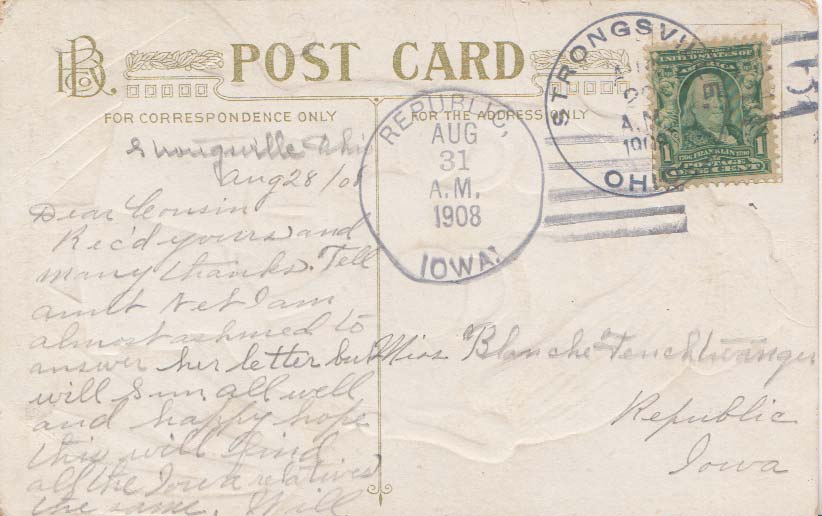 POST CARD
FOR CORRESPONDENCE ONLY
FOR THE ADDRESS ONLY
REPUBLIC,
AUG
31
A.M.
1908
IOWA.
STRONGSVILLE
A.M.
1908
OHIO
UNITED STATES OF
AMERICA
1706 FRANKLIN 1790
1 POSTAGE 1
ONE CENT
Strongsville Ohio
Aug 28/08
Dear Cousin
Rec'd yours and
many thanks. Tell
aunt Net I am
almost ashmed to
answer her letter but
will soon. all well
and happy hope
this will find
all the Iowa relatives
the same. Will
Miss Blanche
Republic
Iowa